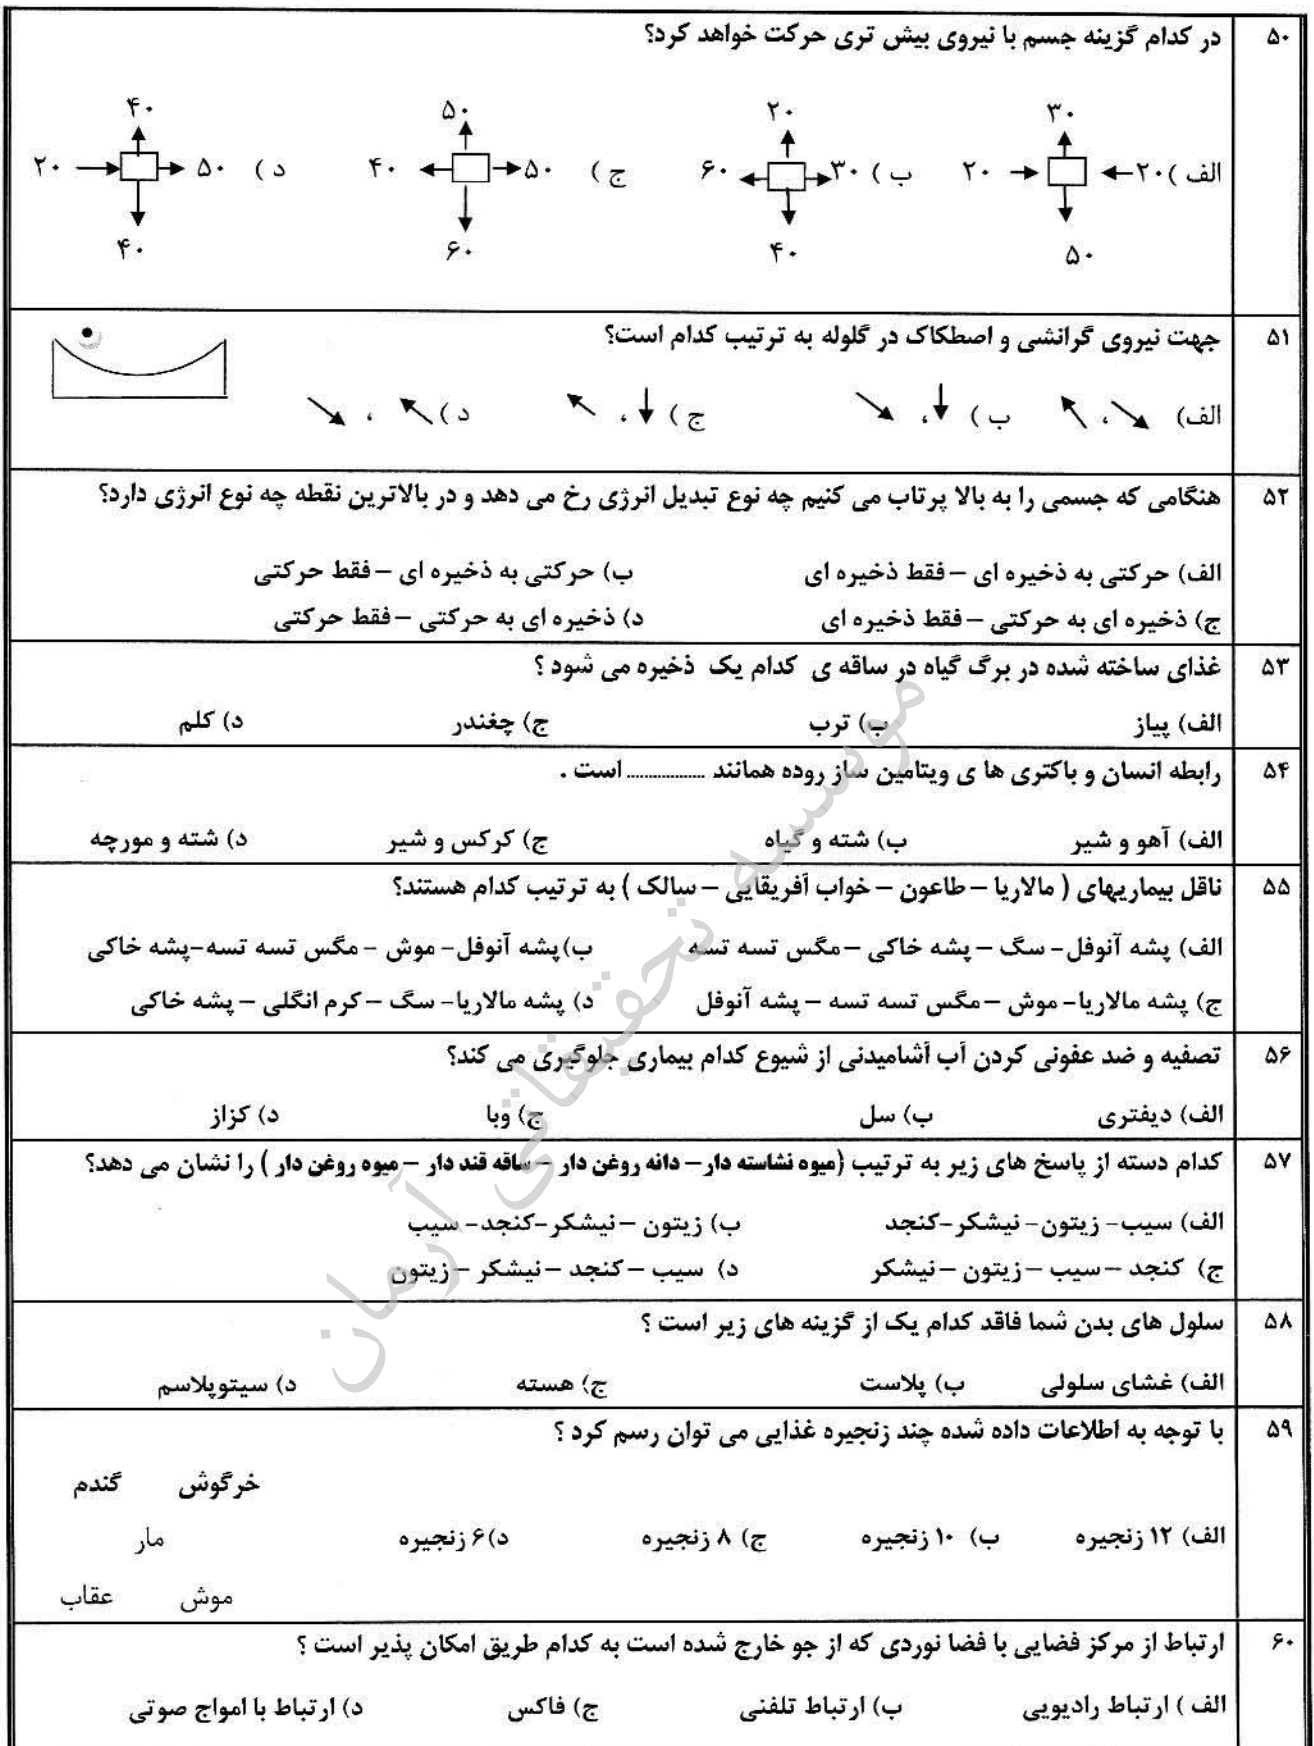 ۵۰ در کدام گزینه جسم با نیروی بیش تری حرکت خواهد کرد؟
۳۰ ۲۰ ۵۰ ۴۰
الف )۲۰ ۲۰ ب )۳۰ ۶۰ ج ) ۵۰ ۴۰ د ) ۵۰ ۲۰
۵۰ ۴۰ ۶۰ ۴۰
۵۱ جهت نیروی گرانشی و اصطکاک در گلوله به ترتیب کدام است؟
الف) ، ب ) ، ج ) ، د ) ،
۵۲ هنگامی که جسمی را به بالا پرتاب می کنیم چه نوع تبدیل انرژی رخ می دهد و در بالاترین نقطه چه نوع انرژی دارد؟
الف) حرکتی به ذخیره ای – فقط ذخیره ای ب) حرکتی به ذخیره ای – فقط حرکتی
ج) ذخیره ای به حرکتی – فقط ذخیره ای د) ذخیره ای به حرکتی – فقط حرکتی
۵۳ غذای ساخته شده در برگ گیاه در ساقه ی کدام یک ذخیره می شود ؟
الف) پیاز ب) ترب ج) چغندر د) کلم
۵۴ رابطه انسان و باکتری ها ی ویتامین ساز روده همانند ................ است .
الف) آهو و شیر ب) شته و گیاه ج) کرکس و شیر د) شته و مورچه
۵۵ ناقل بیماریهای ( مالاریا – طاعون – خواب آفریقایی – سالک ) به ترتیب کدام هستند؟
الف) پشه آنوفل- سگ – پشه خاکی – مگس تسه تسه ب)پشه آنوفل- موش - مگس تسه تسه-پشه خاکی
ج) پشه مالاریا- موش – مگس تسه تسه – پشه آنوفل د) پشه مالاریا- سگ – کرم انگلی – پشه خاکی
۵۶ تصفیه و ضد عفونی کردن آب آشامیدنی از شیوع کدام بیماری جلوگیری می کند؟
الف) دیفتری ب) سل ج) وبا د) کزاز
۵۷ کدام دسته از پاسخ های زیر به ترتیب (میوه نشاسته دار– دانه روغن دار – ساقه قند دار – میوه روغن دار ) را نشان می دهد؟
الف) سیب- زیتون- نیشکر-کنجد ب) زیتون – نیشکر-کنجد- سیب
ج) کنجد – سیب – زیتون – نیشکر د) سیب – کنجد – نیشکر – زیتون
۵۸ سلول های بدن شما فاقد کدام یک از گزینه های زیر است ؟
الف) غشای سلولی ب) پلاست ج) هسته د) سیتوپلاسم
۵۹ با توجه به اطلاعات داده شده چند زنجیره غذایی می توان رسم کرد ؟
خرگوش گندم
الف) ۱۲ زنجیره ب) ۱۰ زنجیره ج) ۸ زنجیره د)۶ زنجیره مار
موش عقاب
۶۰ ارتباط از مرکز فضایی با فضا نوردی که از جو خارج شده است به کدام طریق امکان پذیر است ؟
الف ) ارتباط رادیویی ب) ارتباط تلفنی ج) فاکس د) ارتباط با امواج صوتی
موسسه تحقیقاتی آرمان